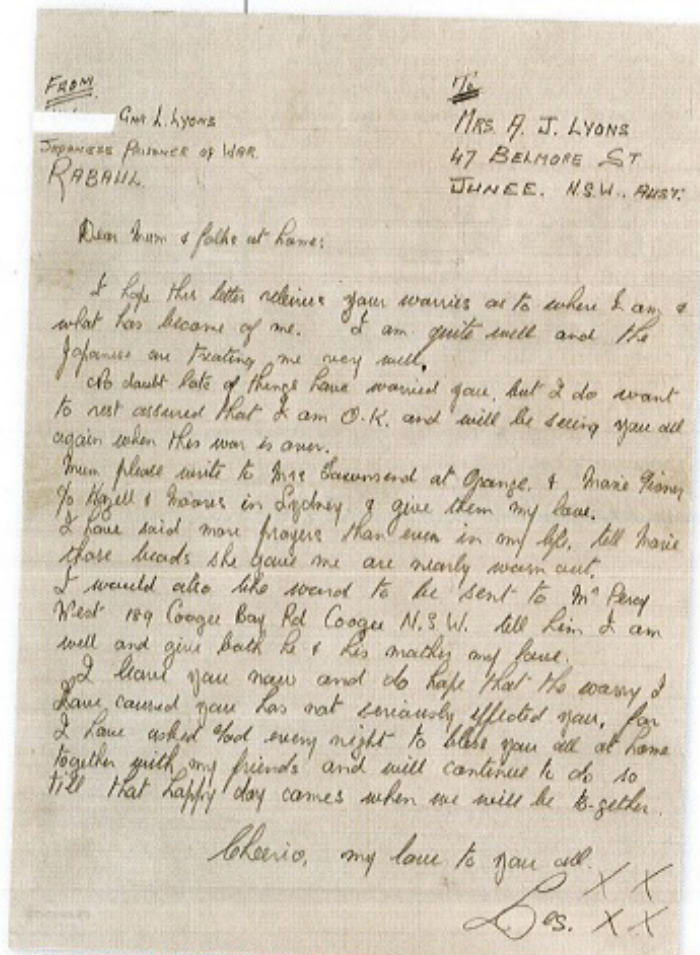 FROM
To
GNR L. LYONS
JAPANESE PRISONER OF WAR.
RABAUL.
MRS. A. J. LYONS
47 BELMORE ST
JUNEE. N.S.W. AUST.
Dear Mum & folks at home:
I hope this letter relieves your worries as to where I am &
what has become of me. I am quite well and the
Japanese are treating me very well.
No doubt lots of things have worried you, but I do want
to rest assured that I am O.K. and will be seeing you all
again when this war is over.
Mum please write to Mrs Townsend at Orange. & Marie
c/o Hazell & Moores in Sydney & give them my love.
I have said more prayers than ever in my life, tell Marie
those beads she gave me are nearly worn out.
I would also like word to be sent to Mr Percy
West 189 Coogee Bay Rd Coogee N.S.W. tell him I am
well and give both he & his mother my love.
I leave you now and do hope that the worry I
have caused you has not seriously effected you, for
I have asked God every night to bless you all at home
together with my friends and will continue to do so
till that happy day comes when we will be to-gether.
Cheerio, my love to you all.
Les. X X
X X